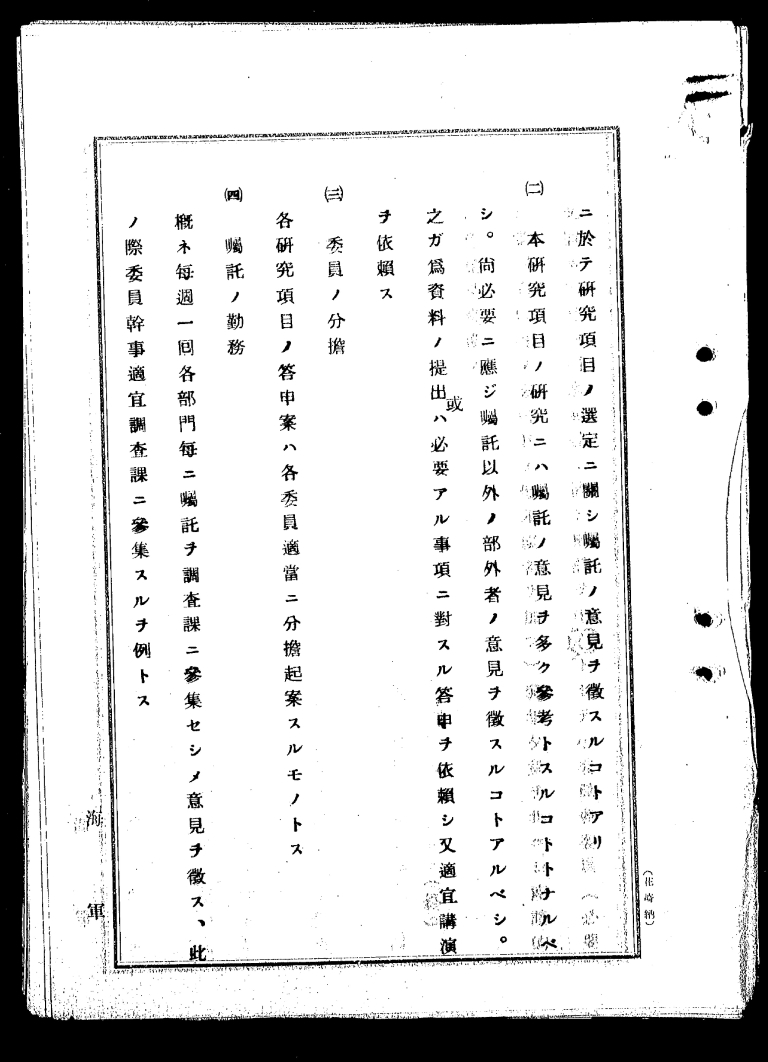 ニ於テ研究項目ノ選定ニ關シ囑託ノ意見ヲ徵スルコトアリ
㈡ 本研究項目ノ研究ニハ囑託ノ意見ヲ多ク參考トスルコトトナルベ
シ。尙必要ニ應ジ囑託以外ノ部外者ノ意見ヲ徵スルコトアルベシ。
之ガ爲資料ノ提出或ハ必要アル事項ニ對スル答申ヲ依賴シ又適宜講演
ヲ依賴ス
㈢ 委員ノ分擔
各研究項目ノ答申案ハ各委員適當ニ分擔起案スルモノトス
㈣ 囑託ノ勤務
槪ネ每週一回各部門每ニ囑託ヲ調査課ニ參集セシメ意見ヲ徵ス、此
ノ際委員幹事適宜調査課ニ參集スルヲ例トス
海軍
(北崎納)